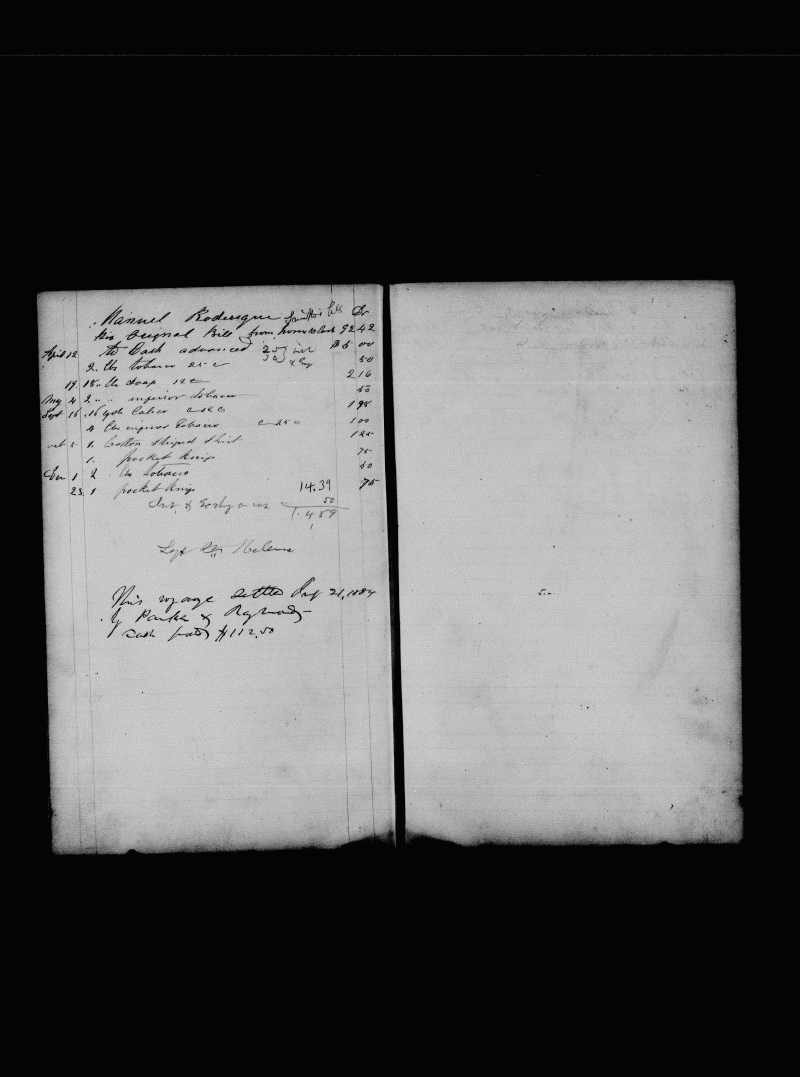 Manuel Roderique Dr
his Original Bill from home to Cash 92 42
April 12 to Cash advanced 25 int $5 00
2 lbs tobacco 25 c 50
19 18 lbs Soap 12 c 2 16
Aug 4 2 " " inferior tobacco 50
Sept 16 16 yds Calico c 12 c 1 98
4 lbs inferior Tobacco c 25 c 1 00
oct 5 1 Cotton Striped Shirt 1 25
1 pocket knife 75
Dec 1 2 lbs tobacco 50
23 1 pocket knife 14.39 75
Int & 50
1.489
Left St Helena
This voyage settled Aug 21, 1884
by Parker &
Cash paid $112.50
5.-